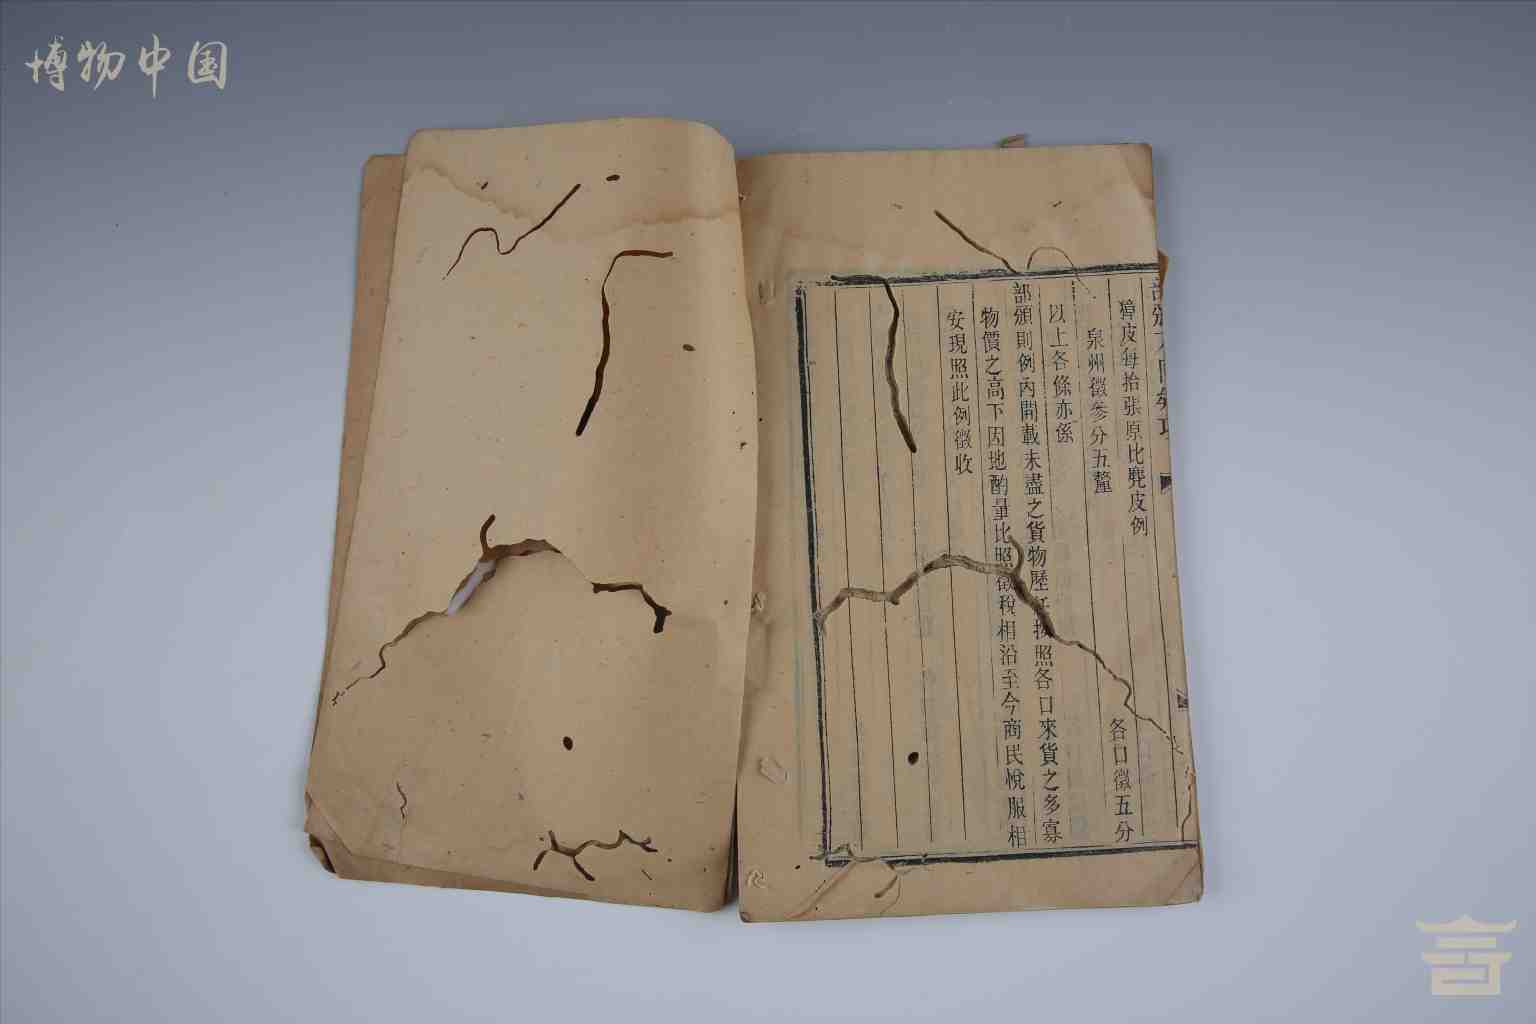 博物中国
獐皮每拾张原比麂皮例
各口徵五分
泉州徵参分五釐
以上各條亦係
部頒則例內開載未盡之貨物歷任按照各口來貨之多寡
物價之高下因地酌量比照徵稅相沿至今商民悅服相
安現照此例徵收